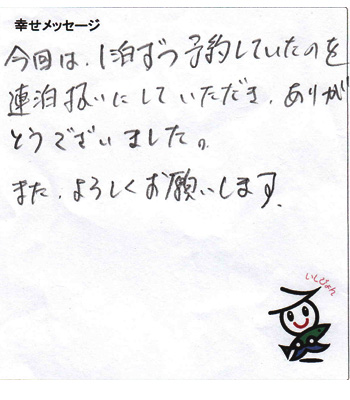 幸せメッセージ
今回は、1泊ずつ予約していたのを
連泊扱いにしていただき、ありが
とうございました。
また、よろしくお願いします。
いしぴょん